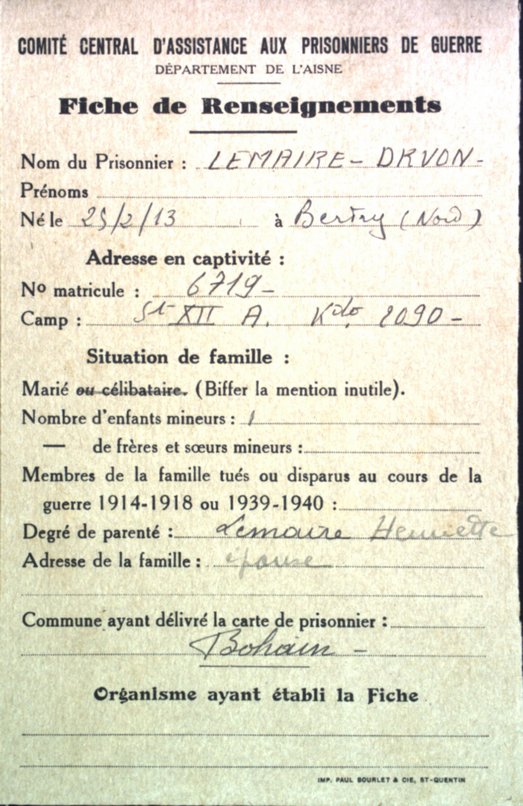 COMITÉ CENTRAL D'ASSISTANCE AUX PRISONNIERS DE GUERRE
DÉPARTEMENT DE L'AISNE
Fiche de Renseignements
Nom du Prisonnier : LEMAIRE - DRVON -
Prénoms
Né le 25/2/13 à Bertry (Nord)
Adresse en captivité :
No matricule : 6719 -
Camp : St XII A. Kdo. 2090 -
Situation de famille :
Marié ou célibataire. (Biffer la mention inutile).
Nombre d'enfants mineurs : 1
— de frères et sœurs mineurs :
Membres de la famille tués ou disparus au cours de la
guerre 1914-1918 ou 1939-1940 :
Degré de parenté : Lemaire Henriette
Adresse de la famille : épouse
Commune ayant délivré la carte de prisonnier :
Bohain -
Organisme ayant établi la Fiche
IMP. PAUL BOURLET & CIE, ST-QUENTIN